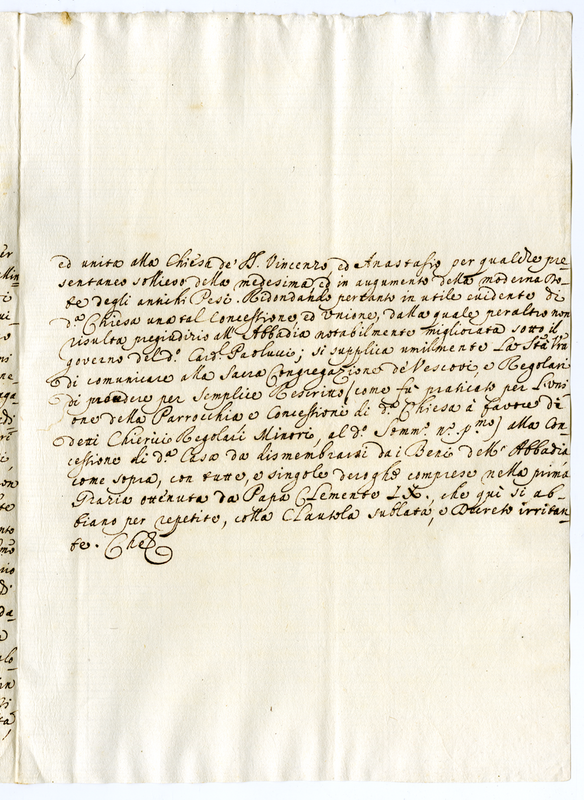 ed unita alla Chiesa de' SS. Vincenzo, ed Anastasio per qualche pre=
sentaneo sollievo della medesima, ed in augumento della moderna Do=
te degli antichi Pesi. Ridondando pertanto in utile evidente di
d.ᵃ Chiesa una tal Concessione ed Unione, dalla quale peraltro non
risulta pregiudizio all' Abbadia notabilmente migliorata sotto il
governo del d.º Card. Paolucci; si supplica umilmente La Stà Vrã
di comunicare alla Sacra Congregazione de' Vescovi, e Regolari
di provedere per semplice Rescritto (come fu' praticato per l'Uni
one della Parrocchia e Concessione di d.ᵃ Chiesa a favore de'
detti Chierici Regolari Minori, al d.º Somm.º n.º pmo) alla Con=
cessione di d.ᵃ Casa da dismembrarsi dai Beni del Abbadia
come sopra, con tutte, e singole deroghe comprese nella prima
Grazia ottenuta da Papa Clemente IX., che quì si ab=
biano per repetite, colla Clausola sublata, e Decreto irritan=
te. Che